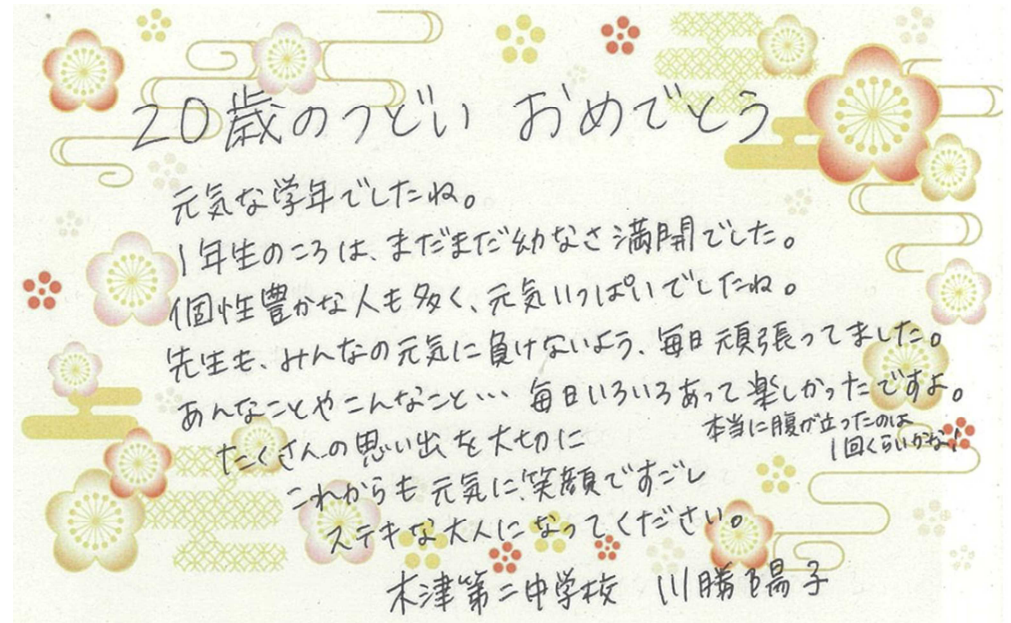 20歳のつどい おめでとう
元気な学年でしたね。
1年生のころは、まだまだ幼なさ満開でした。
個性豊かな人も多く、元気いっぱいでしたね。
先生も、みんなの元気に負けないよう、毎日頑張ってました。
あんなことやこんなこと… 毎日いろいろあって楽しかったですよ。
本当に腹が立ったのは
1回くらいかな!
たくさんの思い出を大切に
これからも元気に、笑顔ですごし
ステキな大人になってください。
木津第二中学校 川勝陽子